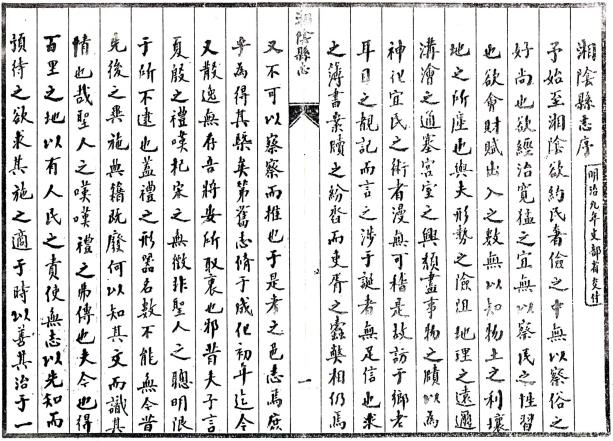 湘陰縣志序
明治九年文部省交付
予始至湘陰欲約民奢儉之中無以察俗之
好尚也欲經治寬猛之宜無以察民之性習
也欲會財賦出入之數無以知物土之利壤
地之所產也與夫形勢之險阻地理之遠邇
溝澮之通塞宮室之興頹盡事物之賾以為
神化宜民之術者漫無可稽是故訪于鄉老
耳目之覩記而言之涉于誕者無足信也求
之簿書案牘之紛沓而吏胥之蠹弊相仍焉
湘陰縣志
一
又不可以察察而推也于是考之邑志焉庶
乎為得其槩矣第舊志脩于成化初年迄今
又散逸無存吾將安所取裏也邪昔夫子言
夏殷之禮嘆杞宋之無徵非聖人之聰明限
于所不逮也蓋禮之形器名數不能無今昔
先後之異施典籍既廢何以知其文而識其
情也哉聖人之嘆嘆禮之弗傳也夫令也得
百里之地以有人民之責使無志以先知而
預待之欲求其施之適于時以善其治于一